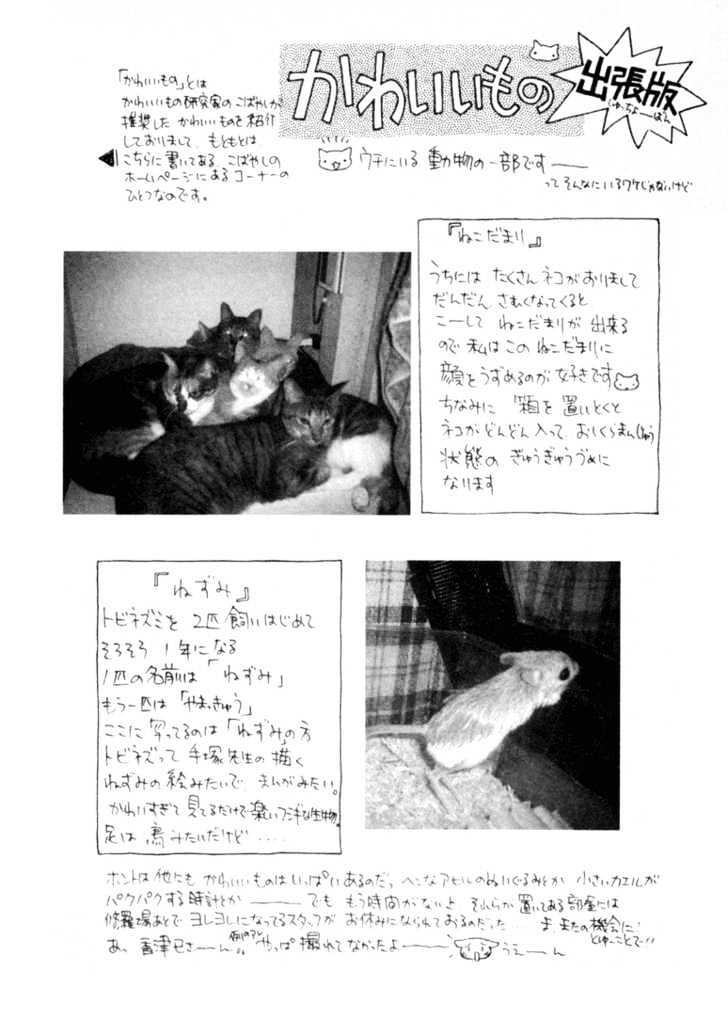 かわいいもの
出張版
しゅっちょーばん
「かわいいもの」とは
かわいいもの研究家のこばやしが
推奨した かわいいものを紹介
しておりまして、もともとは
こちらに書いてある、こばやしの
ホームページにあるコーナーの
ひとつなのです。
ウチにいる 動物の一部です——
ってそんなにいるワケじゃないけど
『ねこだまり』
うちには たくさん ネコがおりまして
だんだん さむくなってくると
こーして ねこだまりが 出来る
ので 私は この ねこだまりに
顔をうずめるのが 好きです
ちなみに 箱を 置いとくと
ネコがどんどん入って、おしくらまんじゅう
状態の ぎゅうぎゅうづめに
なります
『ねずみ』
トビネズミを 2匹 飼いはじめて
そろそろ 1年になる
1匹の名前は「ねずみ」
もう一匹は
ここに 写ってるのは「ねずみ」の方
トビネズって 手塚先生の描く
ねずみの絵みたいで、まんがみたい。
かわいすぎて 見てるだけで楽しいフシギな生物。
足は 鳥みたいだけど ‥‥
ホントは他にも かわいいものはいっぱいあるのだっ ヘンなアヒルのぬいぐるみとか 小さいカエルが
パクパクする時計とか ——— でも もう時間がないよ それらが置いてある部屋には
修羅場あとで ヨレヨレになってるスタッフが お休みになられておるのだった… ま、またの機会に!
とゆーことで!!
あっ さーん 例のアレ やっぱ撮れてなかったよ—— うえーん